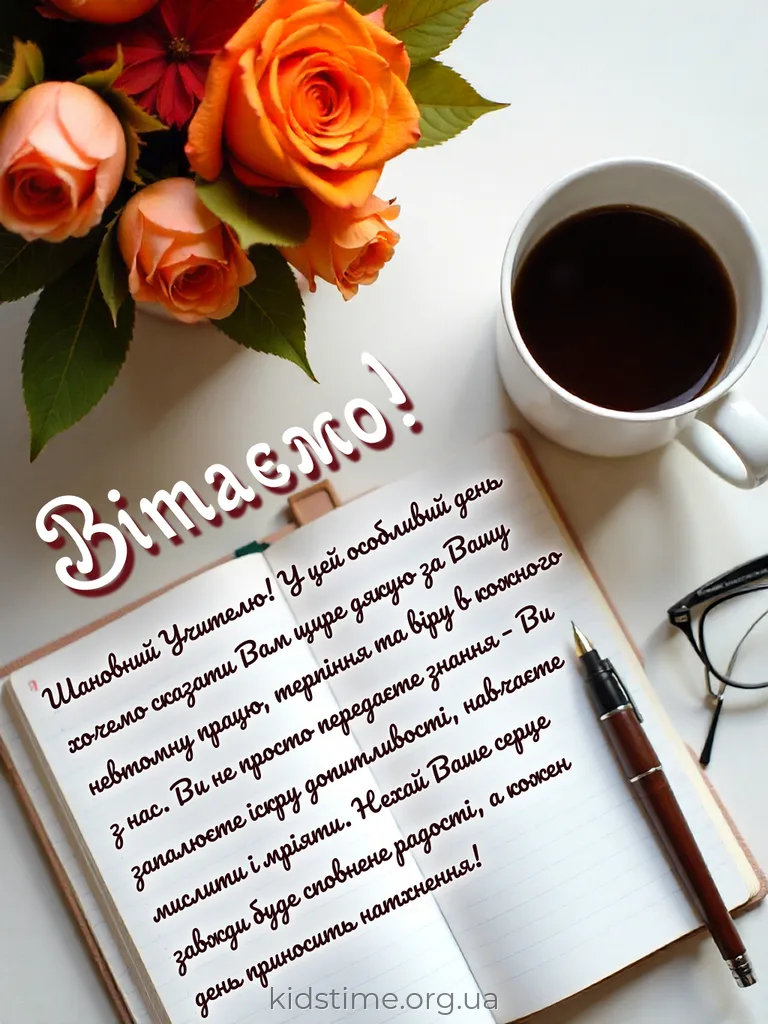 Вітаємо!
Шановний Учителю! У цей особливий день
хочемо сказати Вам щире дякую за Вашу
невтомну працю, терпіння та віру в кожного
з нас. Ви не просто передаєте знання – Ви
запалюєте іскру допитливості, навчаєте
мислити і мріяти. Нехай Ваше серце
завжди буде сповнене радості, а кожен
день приносить натхнення!
kidstime.org.ua